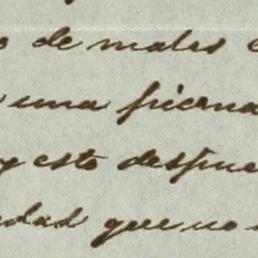 o de males
una pierna
y esto despue
edad que no